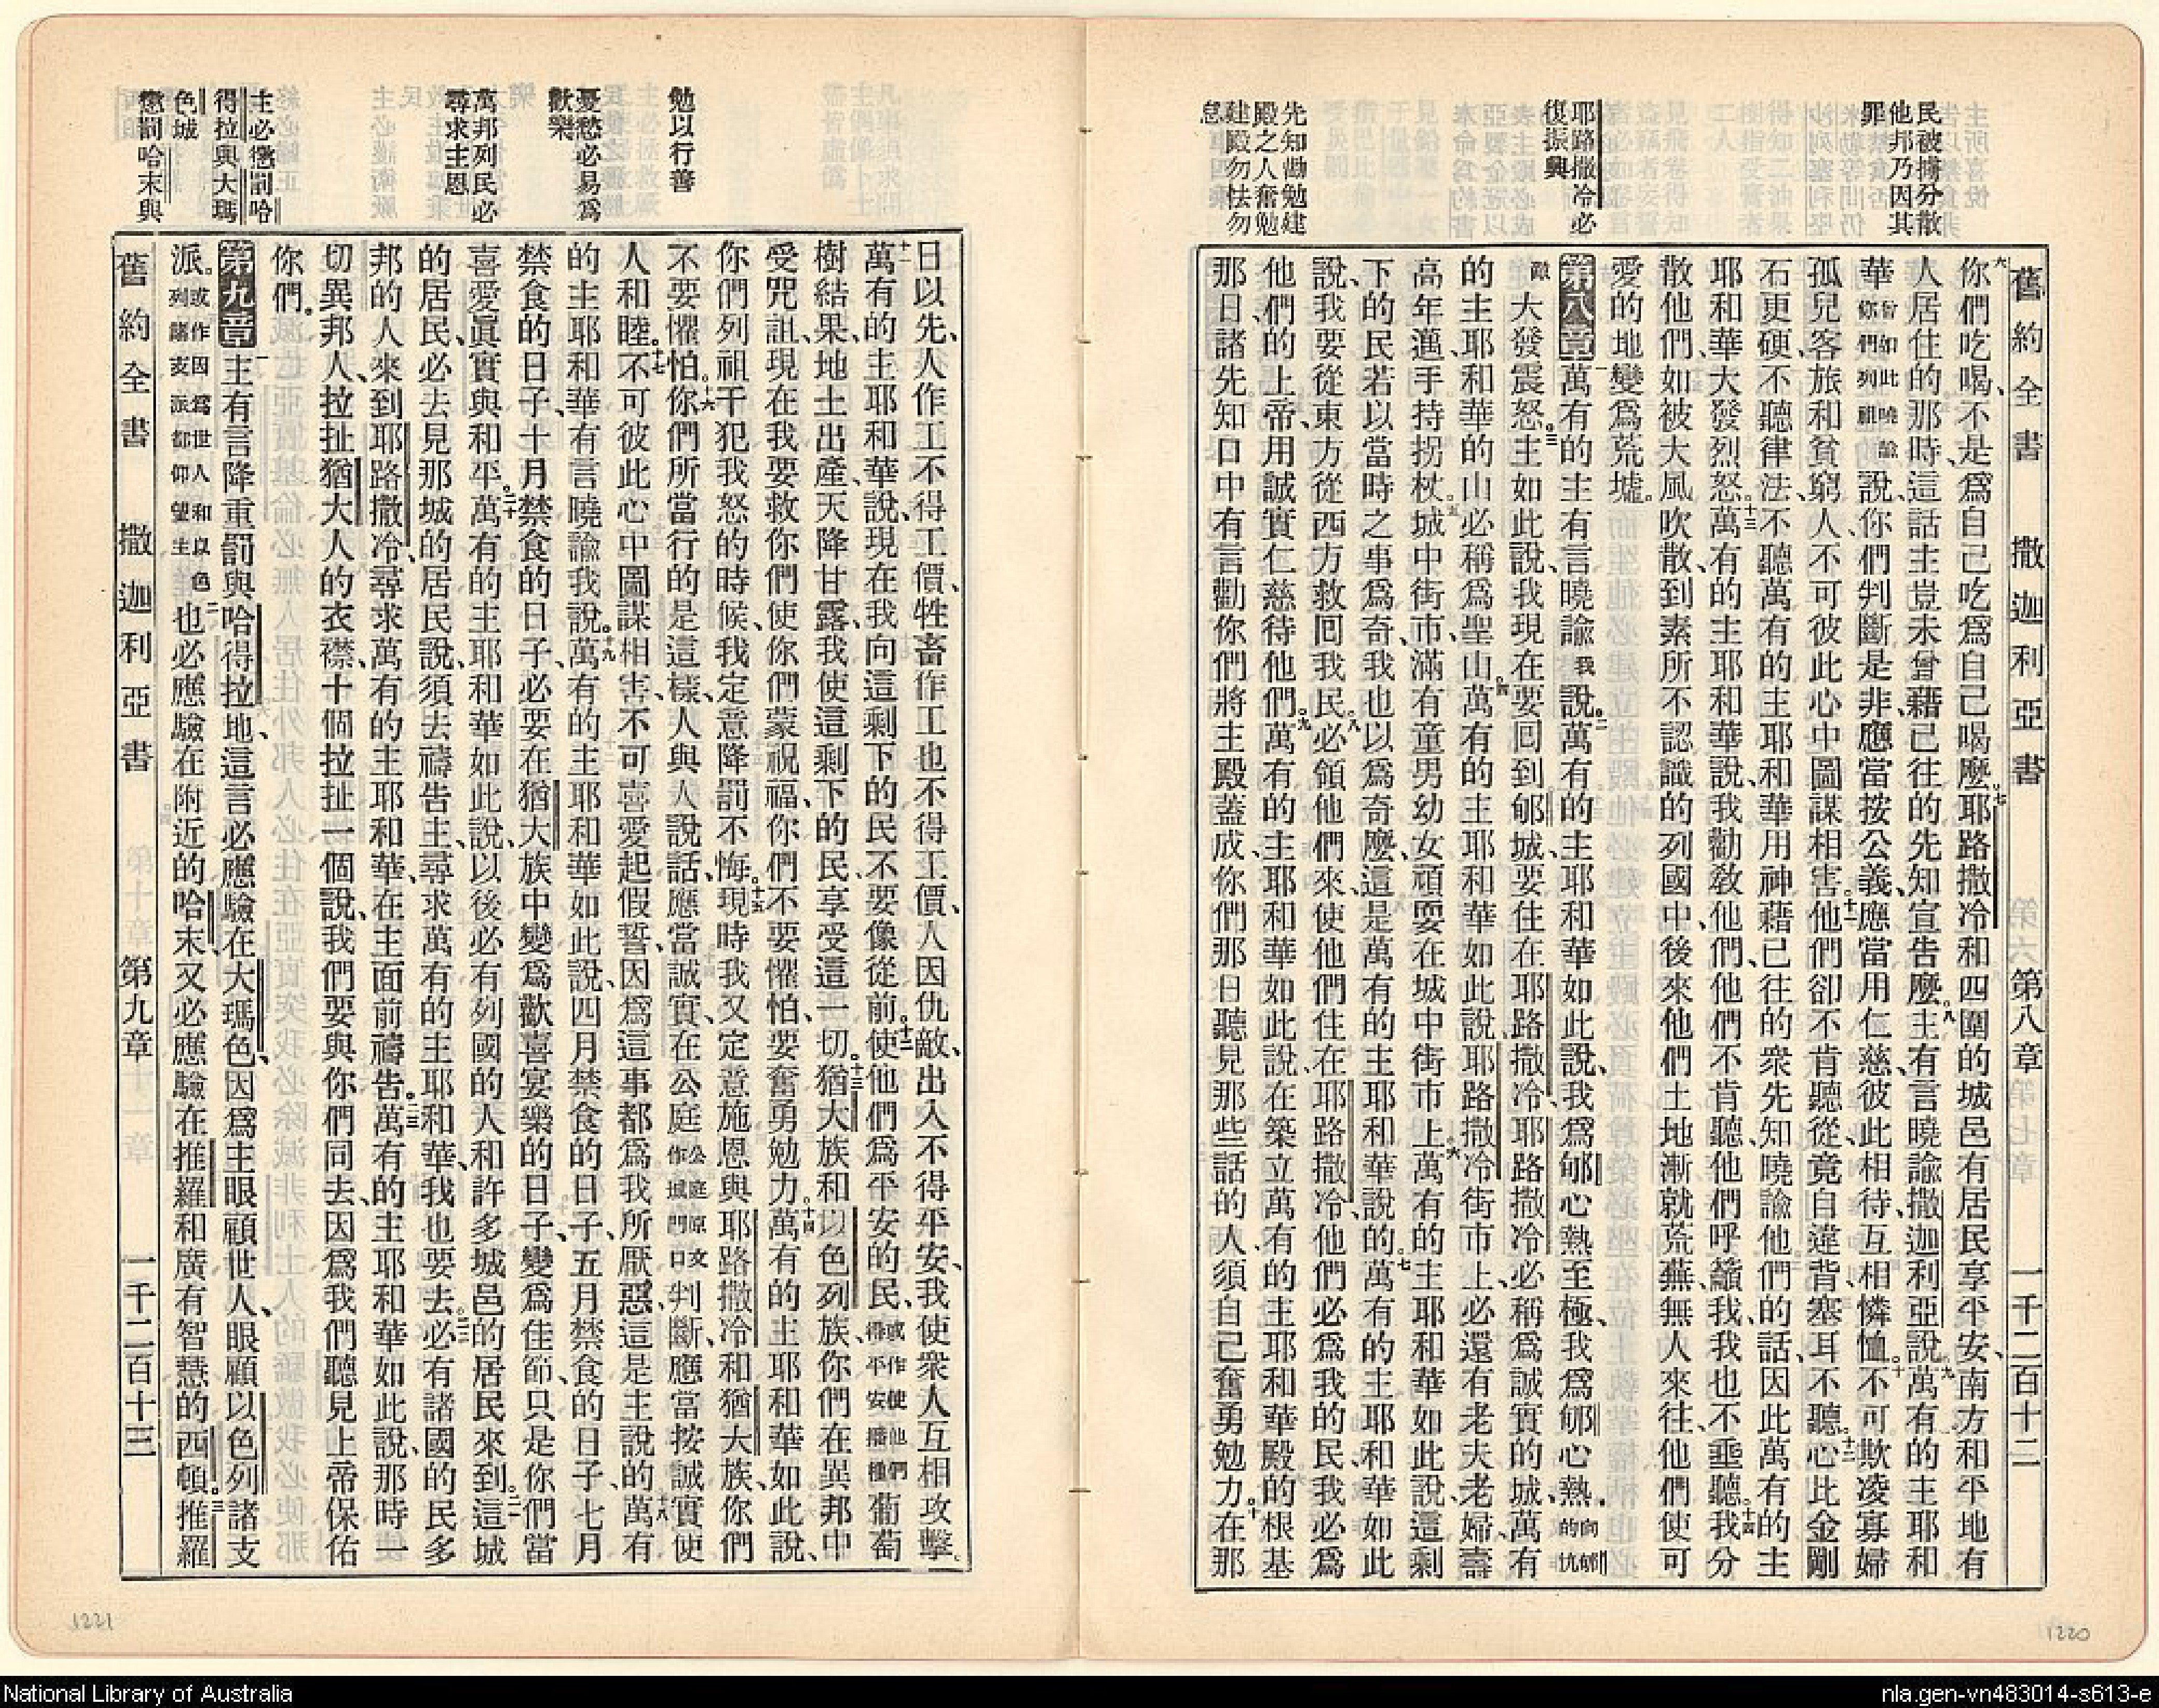 民被擄分散
他邦乃因其
罪
耶路撒冷必
復振興
先知勸勉建
殿之人奮勉
建殿勿怯勿
怠
舊約全書 撒迦利亞書 第八章 一千二百十二
六你們吃喝、不是爲自己吃爲自己喝麼。七耶路撒冷和四圍的城邑有居民享平安、南方和平地有
人居住的那時、這話主豈未曾藉已往的先知宣告麼。八主有言曉諭撒迦利亞說、九萬有的主耶和
華曾如此曉諭你們列祖說、你們判斷是非、應當按公義、應當用仁慈、彼此相待、互相憐恤。十不可欺凌寡婦
孤兒客旅和貧窮人、不可彼此心中圖謀相害。十一他們卻不肯聽從、竟自違背、塞耳不聽。十二心此金剛
石更硬、不聽律法、不聽萬有的主耶和華用神藉已往的衆先知曉諭他們的話、因此萬有的主
耶和華大發烈怒。十三萬有的主耶和華說、我勸敎他們、他們不肯聽、他們呼籲我、我也不垂聽。十四我分
散他們、如被大風吹散、到素所不認識的列國中、後來他們土地漸就荒蕪、無人來往、他們使可
愛的地變爲荒墟。
第八章一萬有的主有言曉諭我說。二萬有的主耶和華如此說、我爲郇心熱至極、我爲郇心熱、向郇的仇
敵大發震怒。三主如此說、我現在要回到郇城、要住在耶路撒冷、耶路撒冷必稱爲誠實的城、萬有
的主耶和華的山必稱爲聖山。四萬有的主耶和華如此說、耶路撒冷街市上、必還有老夫老婦、壽
高年邁、手持拐杖。五城中街市、滿有童男幼女、頑耍在城中街市上。六萬有的主耶和華如此說、這剩
下的民、若以當時之事爲奇、我也以爲奇麼、這是萬有的主耶和華說的。七萬有的主耶和華如此
說、我要從東方從西方救回我民。八必領他們來、使他們住在耶路撒冷、他們必爲我的民、我必爲
他們的上帝、用誠實仁慈待他們。九萬有的主耶和華如此說、在築立萬有的主耶和華殿的根基
那日、諸先知口中有言勸你們將主殿蓋成、你們那日聽見那些話的人、須自己奮勇勉力。十在那
1220
勉以行善
憂愁必易爲
歡樂
萬邦列民必
尋求主恩
主必懲罰哈
得拉與大瑪
色城
懲罰哈末與
日以先、人作工不得工價、牲畜作工也不得工價、人因仇敵、出入不得平安、我使衆人互相攻擊。
十一萬有的主耶和華說、現在我向這剩下的民、不要像從前。十二使他們爲平安的民、或作使他們得平安播種葡萄
樹結果、地土出產、天降甘露、我使這剩下的民享受這一切。十三猶大族和以色列族、你們在異邦中
受咒詛、現在我要救你們、使你們蒙祝福、你們不要懼怕、要奮勇勉力。十四萬有的主耶和華如此說、
你們列祖干犯我怒的時候、我定意降罰不悔。十五現時我又定意施恩與耶路撒冷和猶大族、你們
不要懼怕。十六你們所當行的是這樣、人與人說話、應當誠實、在公庭公庭原文作城門口判斷、應當按誠實使
人和睦。十七不可彼此心中圖謀相害、不可喜愛起假誓、因爲這事都爲我所厭惡、這是主說的。十八萬有
的主耶和華有言曉諭我說。十九萬有的主耶和華如此說、四月禁食的日子、五月禁食的日子、七月
禁食的日子、十月禁食的日子、必要在猶大族中變爲歡喜宴樂的日子、變爲佳節、只是你們當
喜愛眞實與和平。二十萬有的主耶和華如此說、以後必有列國的人、和許多城邑的居民來到。二一這城
的居民、必去見那城的居民說、須去禱告主、尋求萬有的主耶和華、我也要去。二二必有諸國的民多
邦的人、來到耶路撒冷、尋求萬有的主耶和華、在主面前禱告。二三萬有的主耶和華如此說、那時一
切異邦人、拉扯猶大人的衣襟、十個拉扯一個說、我們要與你們同去、因爲我們聽見上帝保佑
你們。
第九章一主有言降重罰與哈得拉地、這言必應驗在大瑪色、因爲主眼顧世人、眼顧以色列諸支
派。或作因爲世人和以色列諸支派都仰望主二也必應驗在附近的哈末、又必應驗在推羅和廣有智慧的西頓。三推羅
舊約全書 撒迦利亞書 第九章 一千二百十三
1221
National Library of Australia
nla.gen-vn483014-s613-e